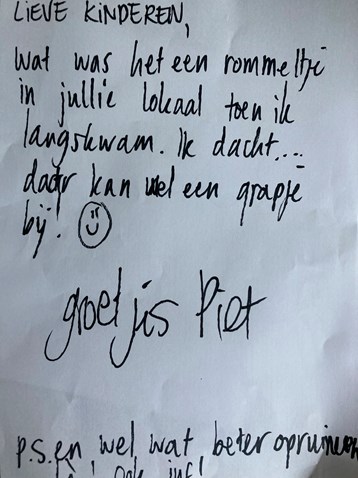 LIEVE KINDEREN,
Wat was het een rommeltje
in jullie lokaal toen ik
langskwam. Ik dacht....
daar kan wel een grapje
bij!
groetjes Piet
P.S. en wel wat beter opruimen
ook juf!